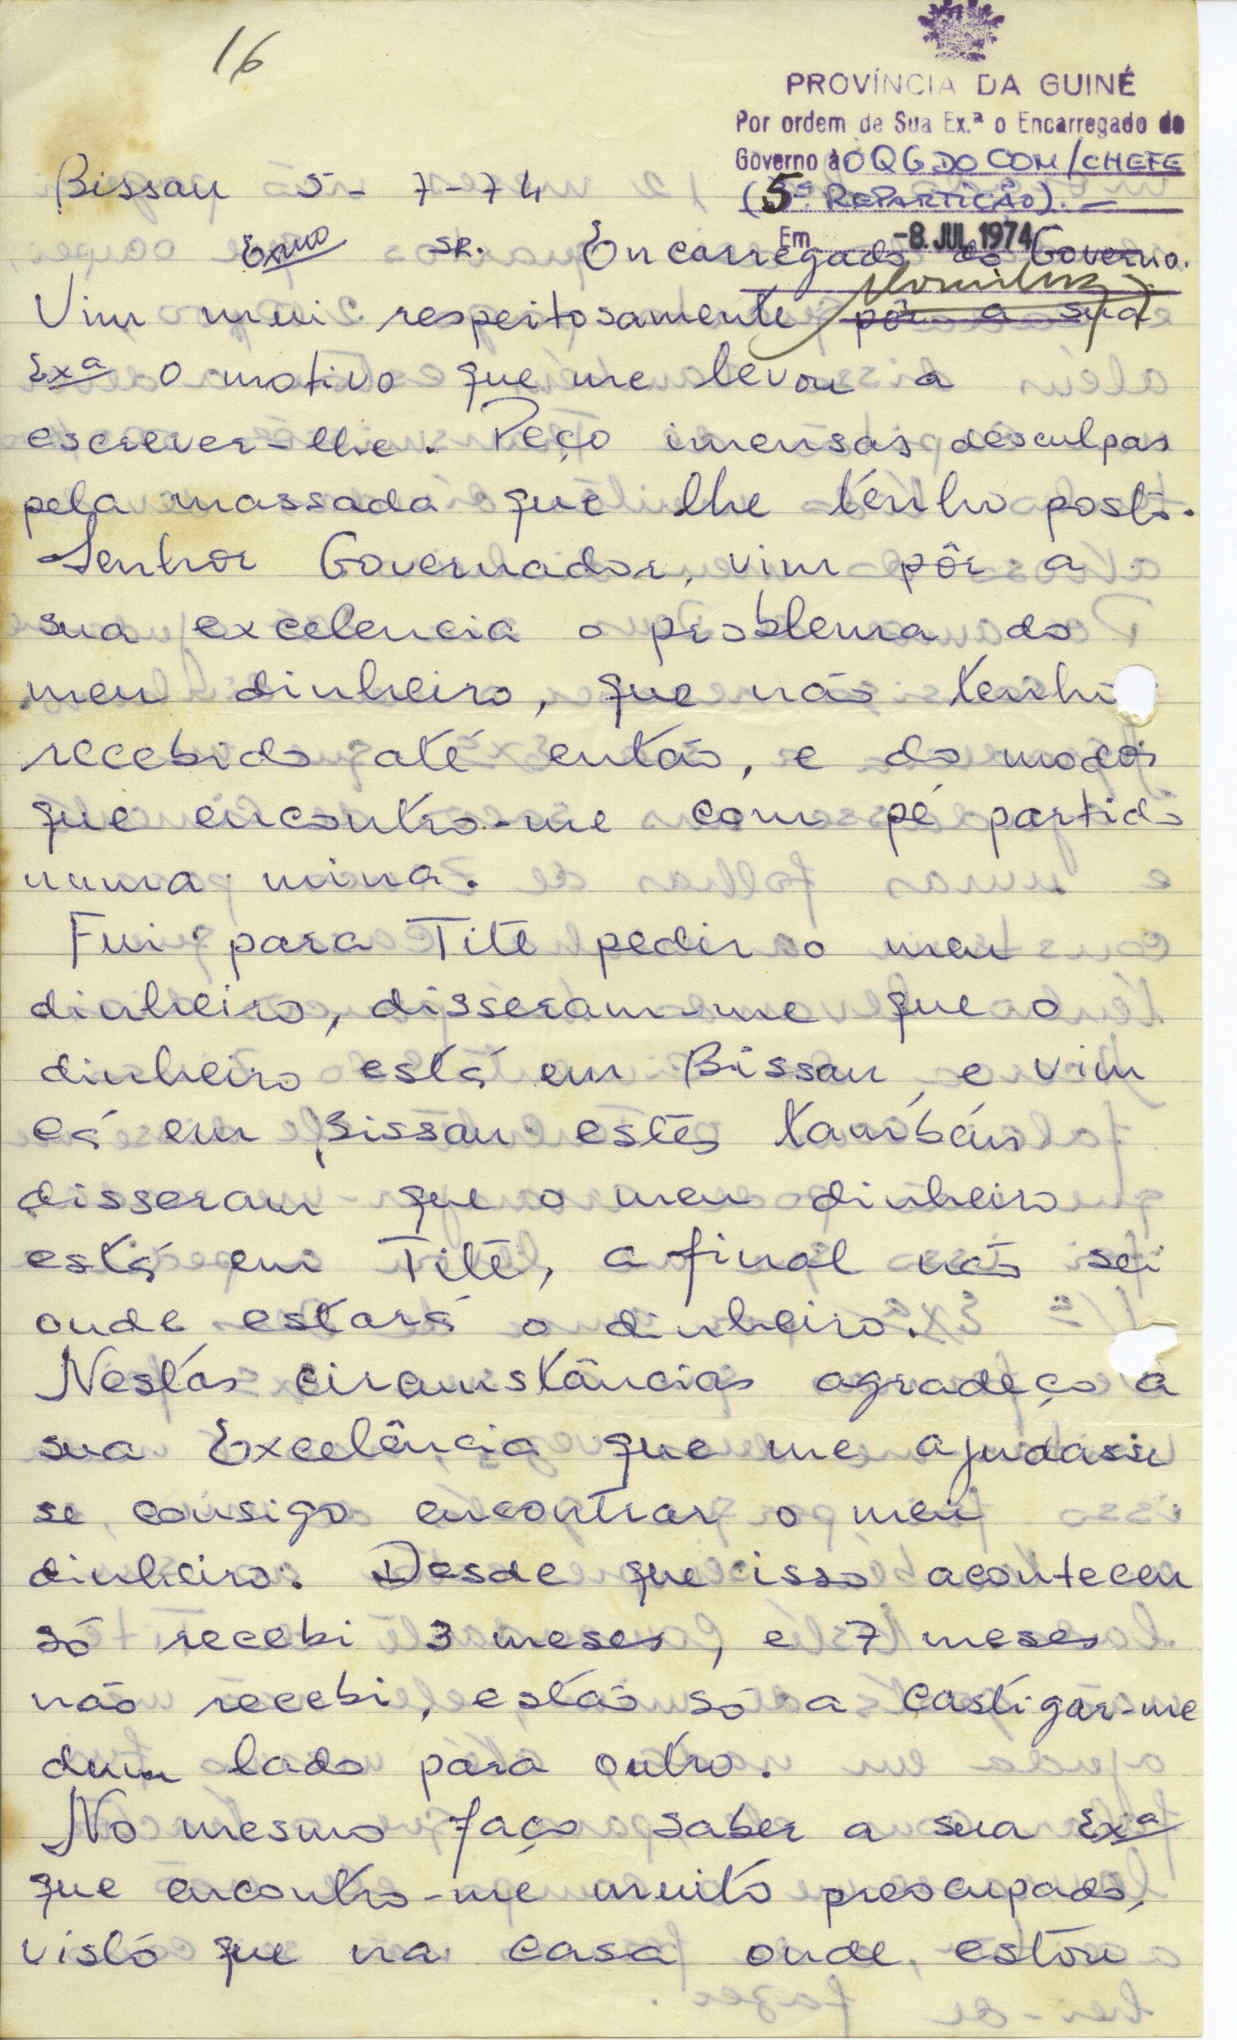 16
PROVÍNCIA DA GUINÉ
Por ordem de Sua Ex.ª o Encarregado do
Governo à O QG DO COM/CHEFE
(5ª REPARTIÇÃO). —
Em -8. JUL 1974
Bissau 5 - 7 - 74
Exmo SR. Encarregado do Governo.
Vim mui respeitosamente pôr a sua
Exª o motivo que me levou a
escrever-lhe. Peço imensas desculpas
pela massada que lhe tenho posto.
Senhor Governador, vim pôr a
sua excelencia o problema do
meu dinheiro, que não tenho
recebido até então, e do modos
que encontro-me com pé partido
numa mina.
Fui para Tite pedir o meu
dinheiro, disseram-me que o
dinheiro está em Bissau, e vim
cá em Bissau estes também
disseram que o meu dinheiro
está em Tite, a final não sei
onde estará o dinheiro.
Nestas circunstâncias agradeço a
sua Excelência que me ajudasse
se consigo encontrar o meu
dinheiro. Desde que isso aconteceu
só recebi 3 meses, e 7 meses
não recebi, estão só a castigar-me
dum lado para outro.
No mesmo faço saber a sua Exª
que encontro-me muito preocupado,
visto que na casa onde estou